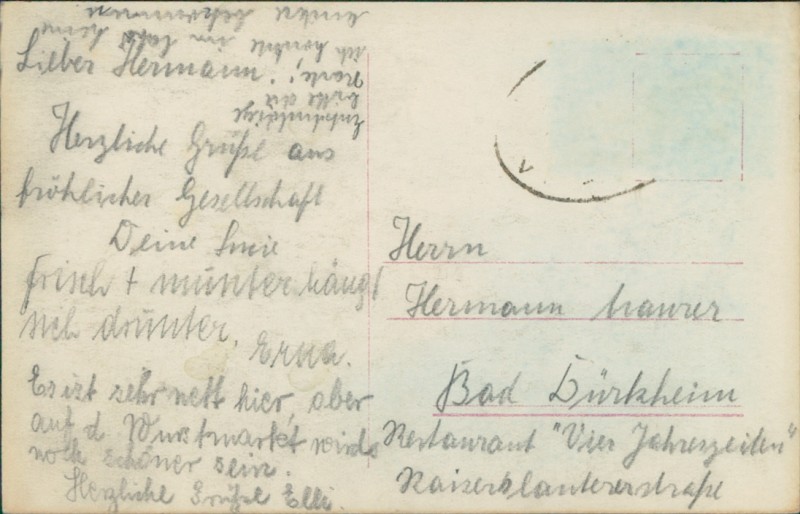 Lieber Hermann!
Herzliche Grüße aus
fröhlicher Gesellschaft
Deine
frisch + munter hängt
sich drunter, Erna.
Es ist sehr nett hier, aber
auf d. Wurstmarkt wirds
noch schöner sein.
Herzliche Grüße Elli.
Entschuldige
bitte die
Karte,
ich konnte im keine
andere bekommen
Herrn
Hermann Maurer
Bad Dürkheim
Restaurant "Vier Jahreszeiten"
Kaiserslautererstraße